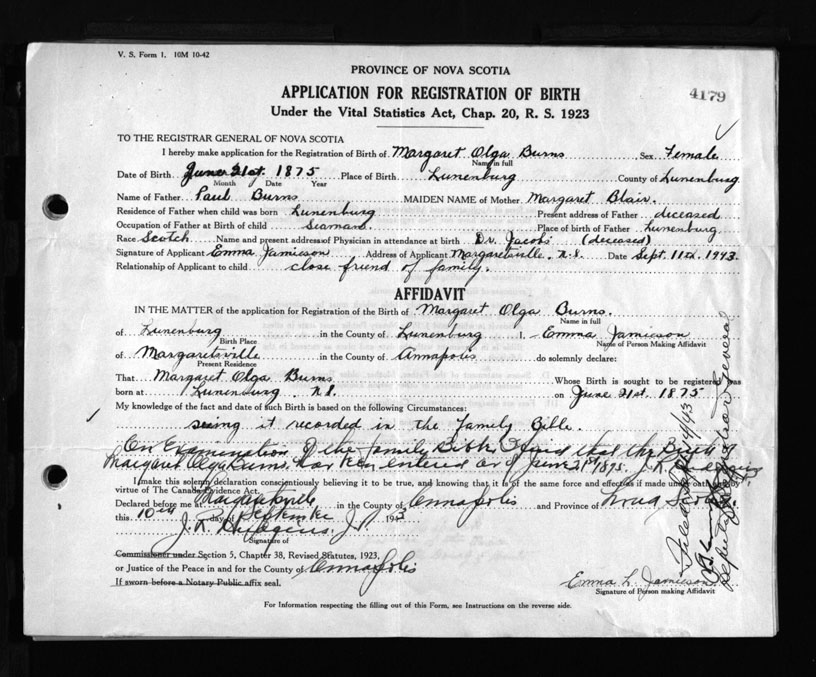 V. S. Form 1. 10M 10-42
PROVINCE OF NOVA SCOTIA
APPLICATION FOR REGISTRATION OF BIRTH
4179
Under the Vital Statistics Act, Chap. 20, R. S. 1923
TO THE REGISTRAR GENERAL OF NOVA SCOTIA
I hereby make application for the Registration of Birth of Margaret Olga Burns Sex Female
Name in full
Date of Birth June 21st. 1875 Place of Birth Lunenburg County of Lunenburg
Month Date Year
Name of Father Paul Burns MAIDEN NAME of Mother Margaret Blair.
Residence of Father when child was born Lunenburg Present address of Father deceased
Occupation of Father at Birth of child Seaman Place of birth of Father Lunenburg
Race Scotch Name and present address of Physician in attendance at birth Dr. Jacobs (deceased)
Signature of Applicant Emma Jamieson Address of Applicant Margaretsville, N.S. Date Sept. 11th. 1943.
Relationship of Applicant to child close friend of family.
AFFIDAVIT
IN THE MATTER of the application for Registration of the Birth of Margaret Olga Burns.
Name in full
of Lunenburg in the County of Lunenburg I, Emma Jamieson
Birth Place Name of Person Making Affidavit
of Margaretsville in the County of Annapolis do solemnly declare:
Present Residence
That Margaret Olga Burns Whose Birth is sought to be registered was
born at Lunenburg, N.S. on June 21st. 1875
My knowledge of the fact and date of such Birth is based on the following Circumstances:
seeing it recorded in the Family Bible.
On Examination of the family Bible I find that the Birth of
Margaret Olga Burns has been entered as of June 21st 1875. J. R. Hudgins
I make this solemn declaration conscientiously believing it to be true, and knowing that it is of the same force and effect as if made under oath by
virtue of The Canada Evidence Act.
Declared before me at Margaretsville in the County of Annapolis and Province of Nova Scotia
this 10th day of September 1943
J. R. Hudgins. J.P.
Signature of
Commissioner under Section 5, Chapter 38, Revised Statutes, 1923,
or Justice of the Peace in and for the County of Annapolis
If sworn before a Notary Public affix seal.
Emma L. Jamieson
Signature of Person making Affidavit
For Information respecting the filling out of this Form, see Instructions on the reverse side.
Filed
Deputy Registrar General